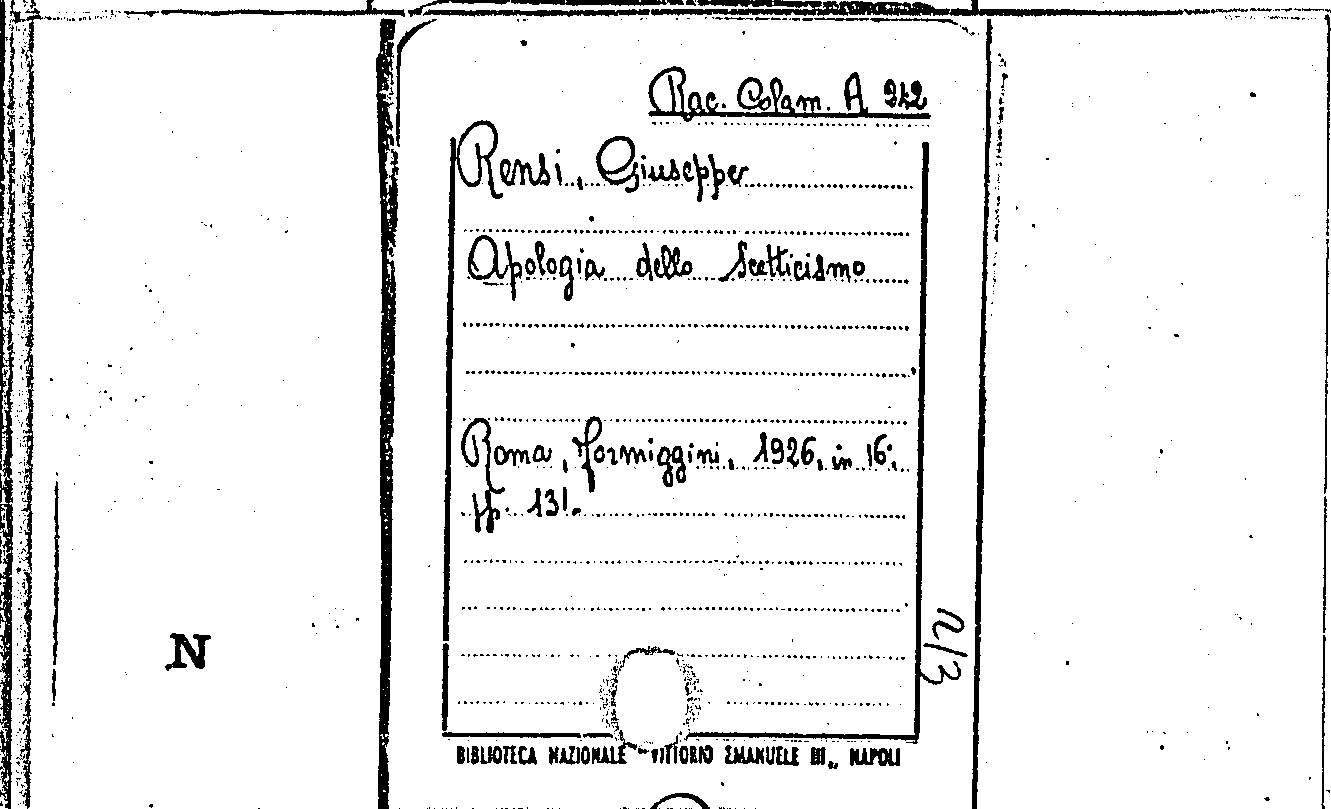 Rac. Colam. A 942
Rensi, Giuseppe
Apologia dello scetticismo
Roma, Formiggini, 1926, in 16°,
pp. 131.
n/3
N
BIBLIOTECA NAZIONALE "VITTORIO EMANUELE III„ NAPOLI